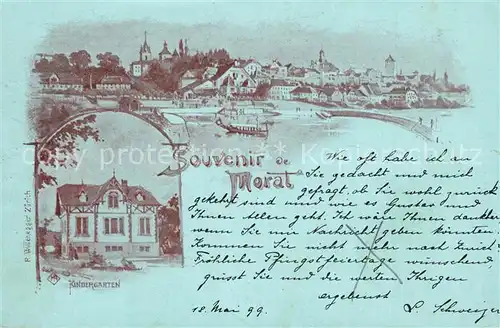 Souvenir de
Morat
Wie oft habe ich an
Sie gedacht und mich
gefragt, ob Sie wohl zurück
gekehrt sind und wie es Gustav und
Ihnen Allen geht. Ich wäre Ihnen dankbar
wenn Sie mir Nachricht geben könnten.
Kommen Sie nicht mehr nach Zürich?
Fröhliche Pfingstfeiertage wünschend
grüsst Sie und die werten Ihrigen
ergebenst
18. Mai 99. L. Schweizer
KINDERGARTEN